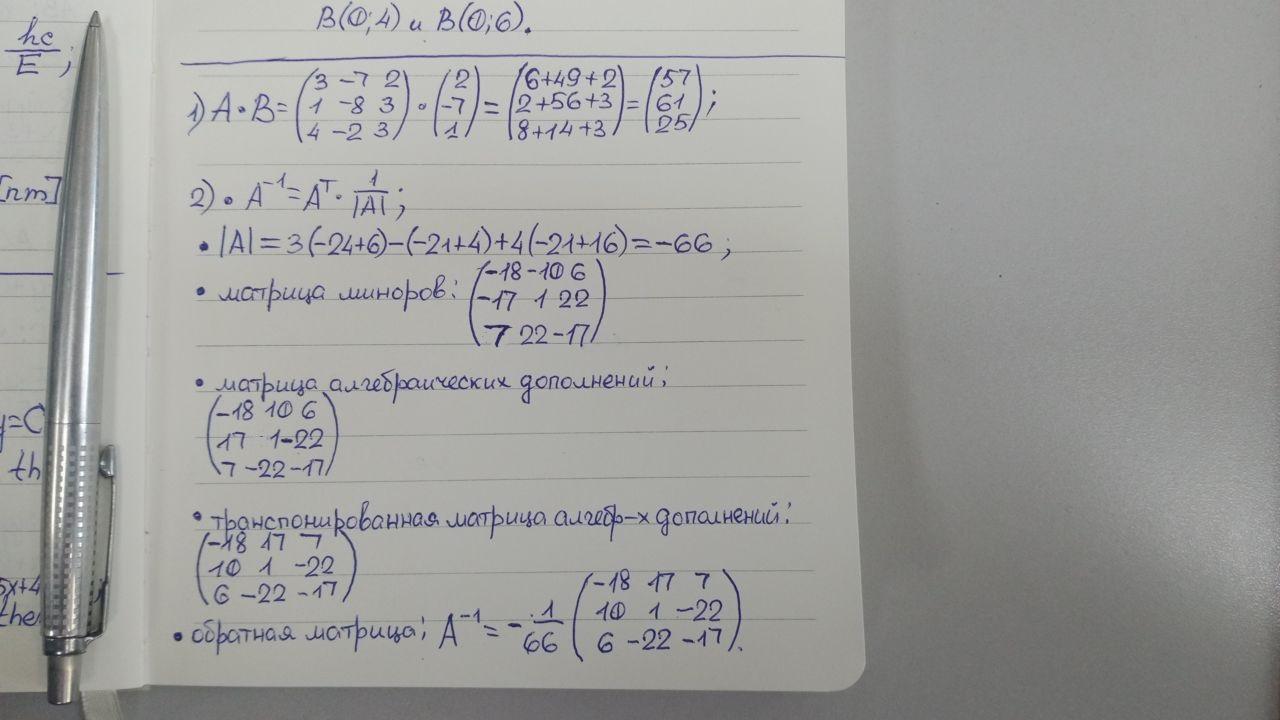 hc
E ;
[nm]
y=C
th
5x+4
the
B(0;4) и B(0;6).
1) A·B= (3 -7 2 · (2 = (6+49+2 = (57
1 -8 3 -7 2+56+3 61
4 -2 3) 1) 8+14+3) 25);
2) • A⁻¹=Aᵀ· 1/|A| ;
• |A|=3(-24+6)-(-21+4)+4(-21+16)=-66 ;
• матрица миноров: (-18 -10 6
-17 1 22
7 22 -17)
• матрица алгебраических дополнений:
(-18 10 6
17 1 -22
7 -22 -17)
• транспонированная матрица алгебр-х дополнений:
(-18 17 7
10 1 -22
6 -22 -17)
• обратная матрица: A⁻¹= - 1/66 (-18 17 7
10 1 -22
6 -22 -17).